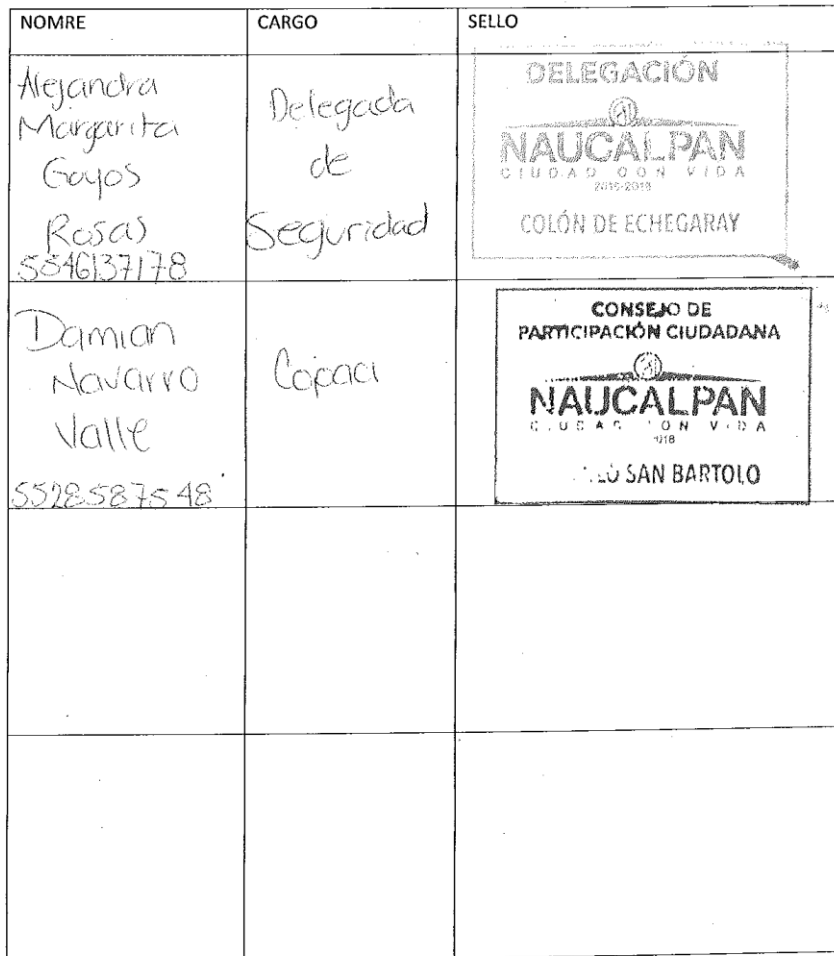 NOMRE
CARGO
SELLO
Alejandra
Margarita
Goyos
Rosas
5546137178
Delegada
de
Seguridad
DELEGACIÓN
NAUCALPAN
CIUDAD CON VIDA
2016-2018
COLÓN DE ECHEGARAY
Damian
Navarro
Valle
5528587548
Copaci
CONSEJO DE
PARTICIPACIÓN CIUDADANA
NAUCALPAN
SAN BARTOLO